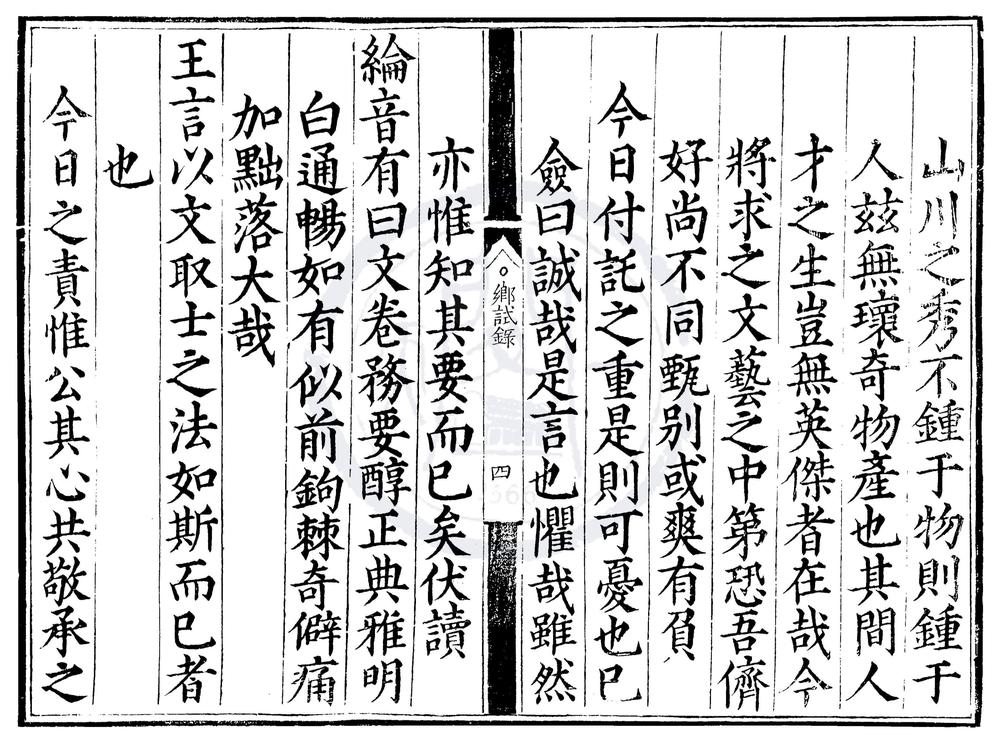 山川之秀不鍾于物則鍾于
人茲無瓌奇物產也其間人
才之生豈無英傑者在哉今
將求之文藝之中第恐吾儕
好尚不同甄别或爽有負
今日付託之重是則可憂也已
僉曰誠哉是言也懼哉雖然
鄉試錄
四
亦惟知其要而已矣伏讀
綸音有曰文卷務要醇正典雅明
白通暢如有似前鉤棘奇僻痛
加黜落大哉
王言以文取士之法如斯而已者
也
今日之責惟公其心共敬承之